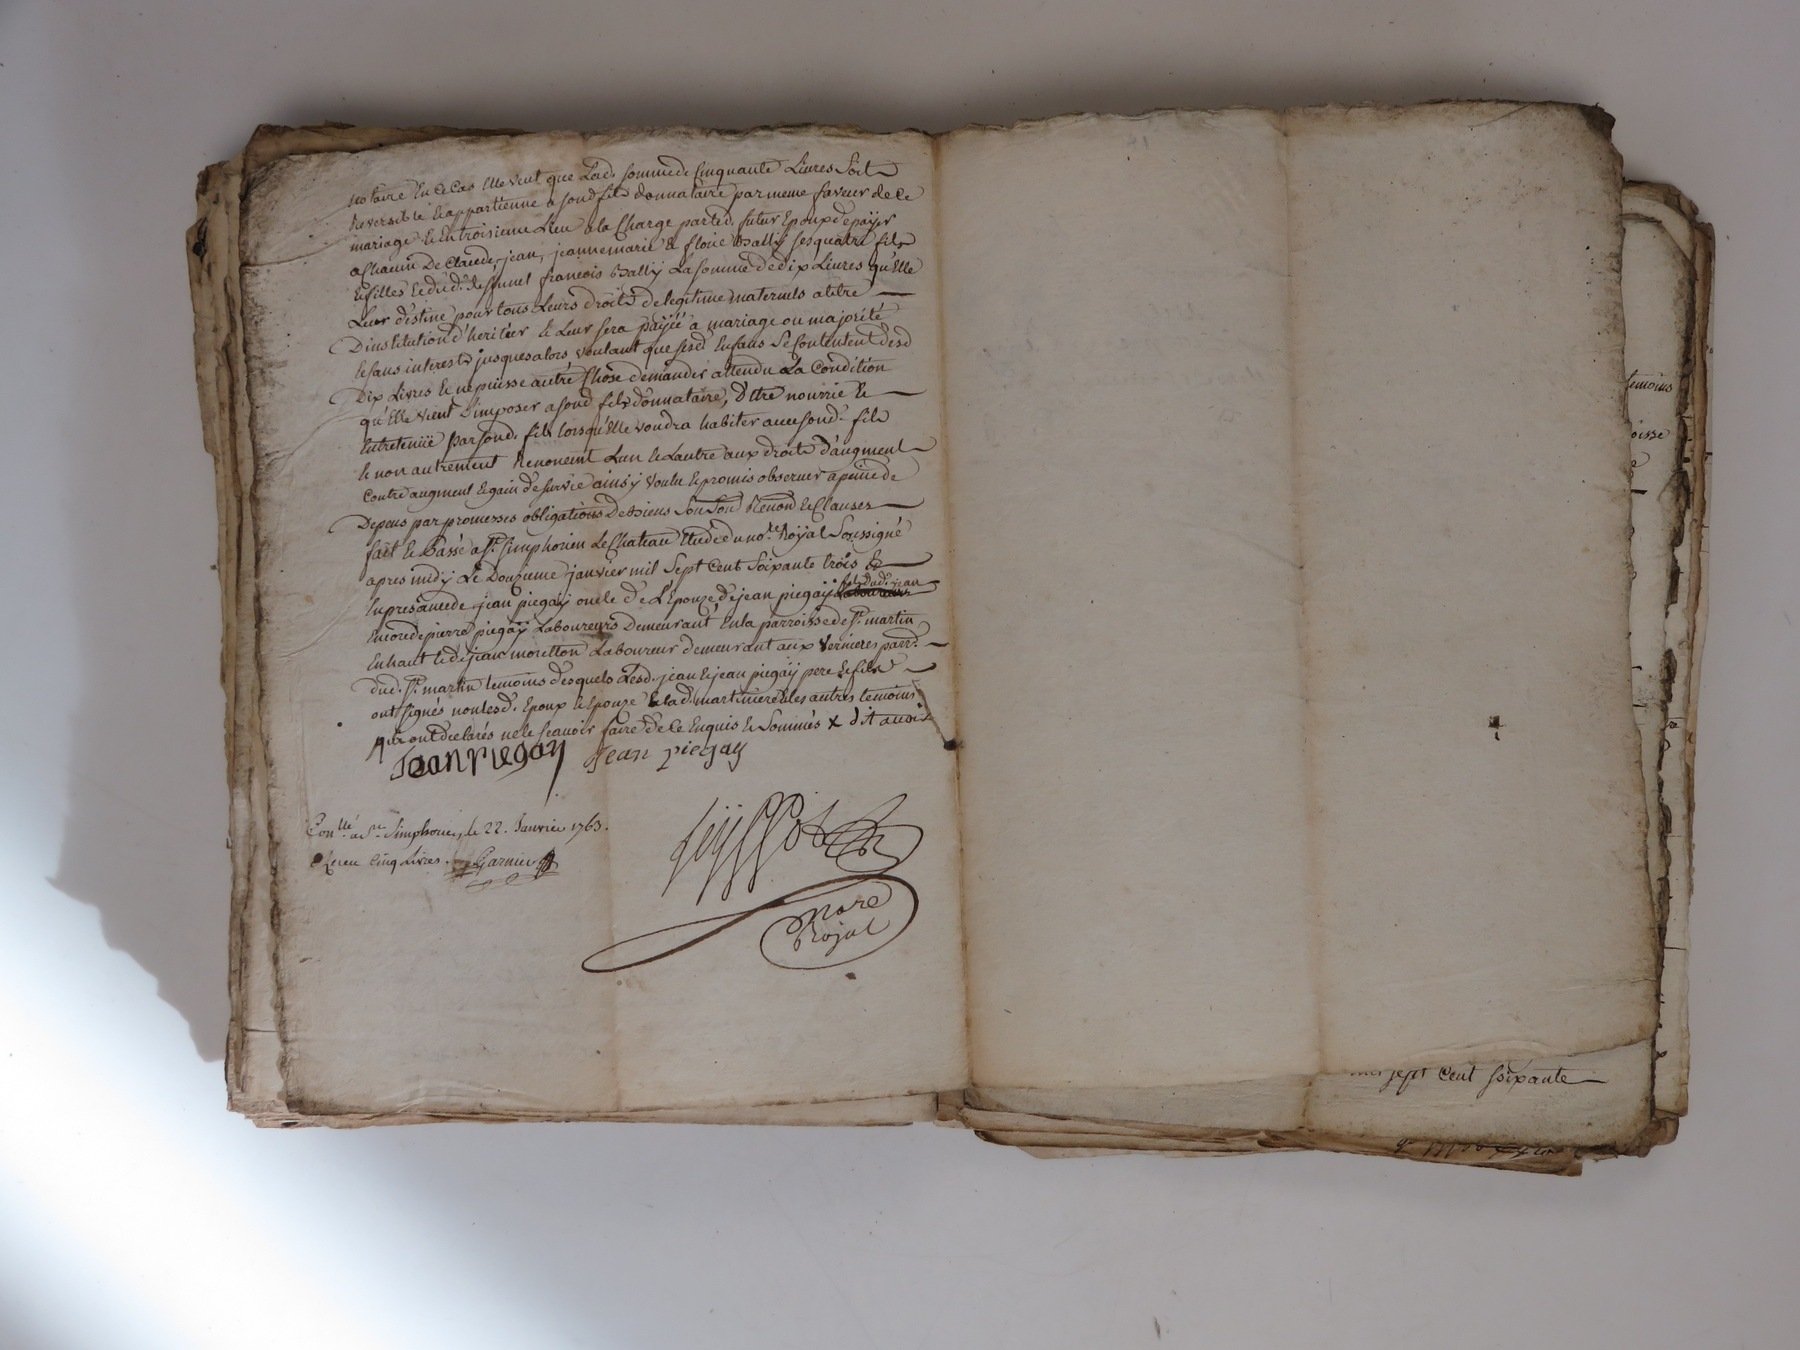 notaire En ce Cas Elle veut que Lad. somme de Cinquante Livres Soit
Reversible & appartienne a sond fils donnataire par meme faveur de ce
mariage & En troisieme Lieu a la Charge parted. futur Epoux de payer
a Chacun De Claude, jean, jeanne marie & florie Bally ses quatre fils
& filles & dud. deffunct francois Bally La somme de dix Livres qu'Elle
Leur destine pour tous Leurs droits de legitime maternels a titre
D'institution d'heritier & Leur sera payée a mariage ou majorité
& sans interests jusques alors voulant que sesd Enfans Se Contentent desd
Dix Livres & ne puisse autre Chose demander attendu La Condition
qu'Elle vient D'imposer a sond fils donnataire, D'être nourrie &
Entretenüe par sond. fils lorsqu'Elle voudra habiter avec sond. fils
& non autrement Renoncent L'un & L'autre aux droits d'augment
Contre augment & gain de survie ainsy voulu & promis observer a peine de
Depens par promesses obligations De biens Renond & Clauses
fait & Passé a St. Simphorien Le Chateau Etude du no.re Royal Soussigné
apres midy Le Douzieme janvier mil Sept Cent Soixante trois
En presance de jean piegay oncle de L'Epouze de jean piegay fils dud. jean
Encore de pierre piegay Laboureurs Demeurant En la parroisse de St. martin
En haut & de jean moretton Laboureur demeurant aux Vernieres parr.
dud. St. martin temoins desquels Lesd. jean & jean piegay pere & fils
ont signés non lesd. Epoux & Epouze & lad. martiniere & les autres temoins
qui ont declarés ne le sçavoir faire de ce Enquis & Sommés x dit avoir
Jean piegay Jean piegay
Con.llé a St. Simphorien, le 22. Janvier 1763.
Receu Cinq Livres. Garnier
Nore
Royal
temoins
oisse
mil sept Cent soixante